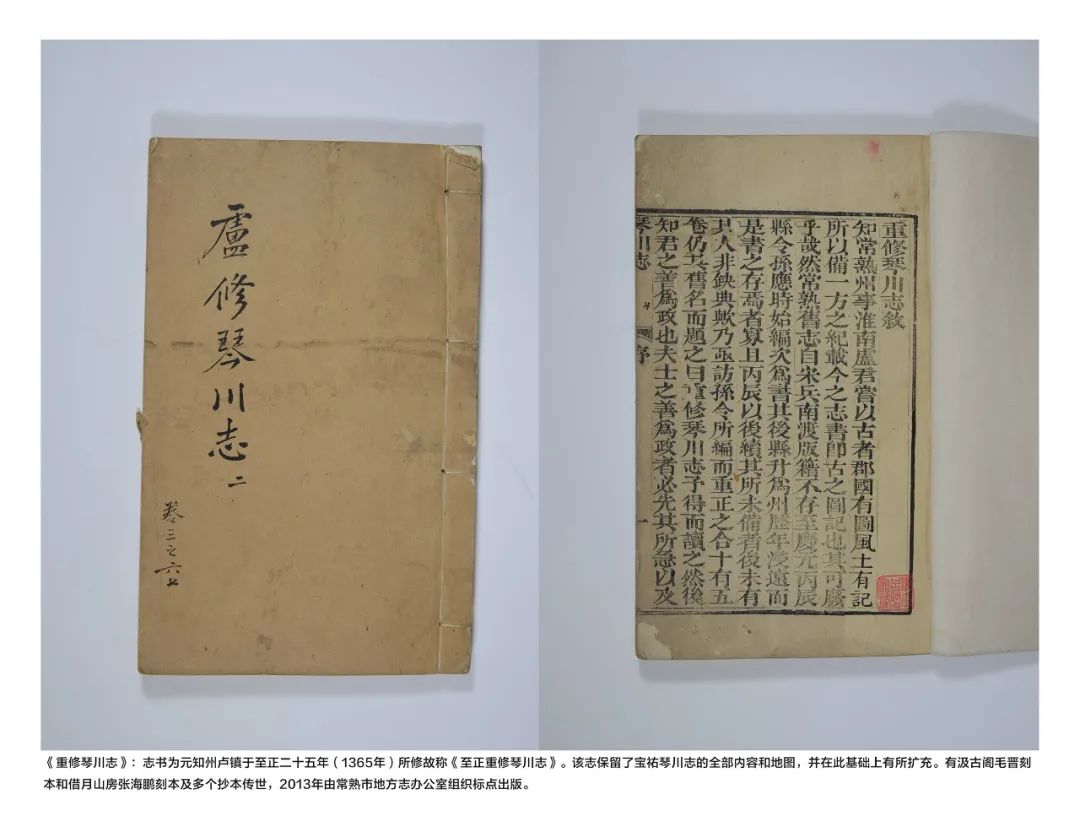 盧修琴川志 二
卷三之六七
重修琴川志敘
知常熟州事淮南盧君嘗以古者郡國有圖風土有記
所以備一方之紀載今之志書卽古之圖記也其可廢
乎哉然常熟舊志自宋兵南渡版籍不存至慶元丙辰
縣令孫應時始編次爲書其後縣升爲州歷年浸遠而
是書之存焉者寡且丙辰以後續其所未備者後未有
其人非缺典歟乃亟訪孫令所編而重正之合十有五
卷仍其舊名而題之曰重修琴川志予得而讀之然後
知君之善爲政也夫士之善爲政者必先其所急以及
琴川志 序 一
《重修琴川志》：志书为元知州卢镇于至正二十五年（1365年）所修故称《至正重修琴川志》。该志保留了宝祐琴川志的全部内容和地图，并在此基础上有所扩充。有汲古阁毛晋刻
本和借月山房张海鹏刻本及多个抄本传世，2013年由常熟市地方志办公室组织标点出版。